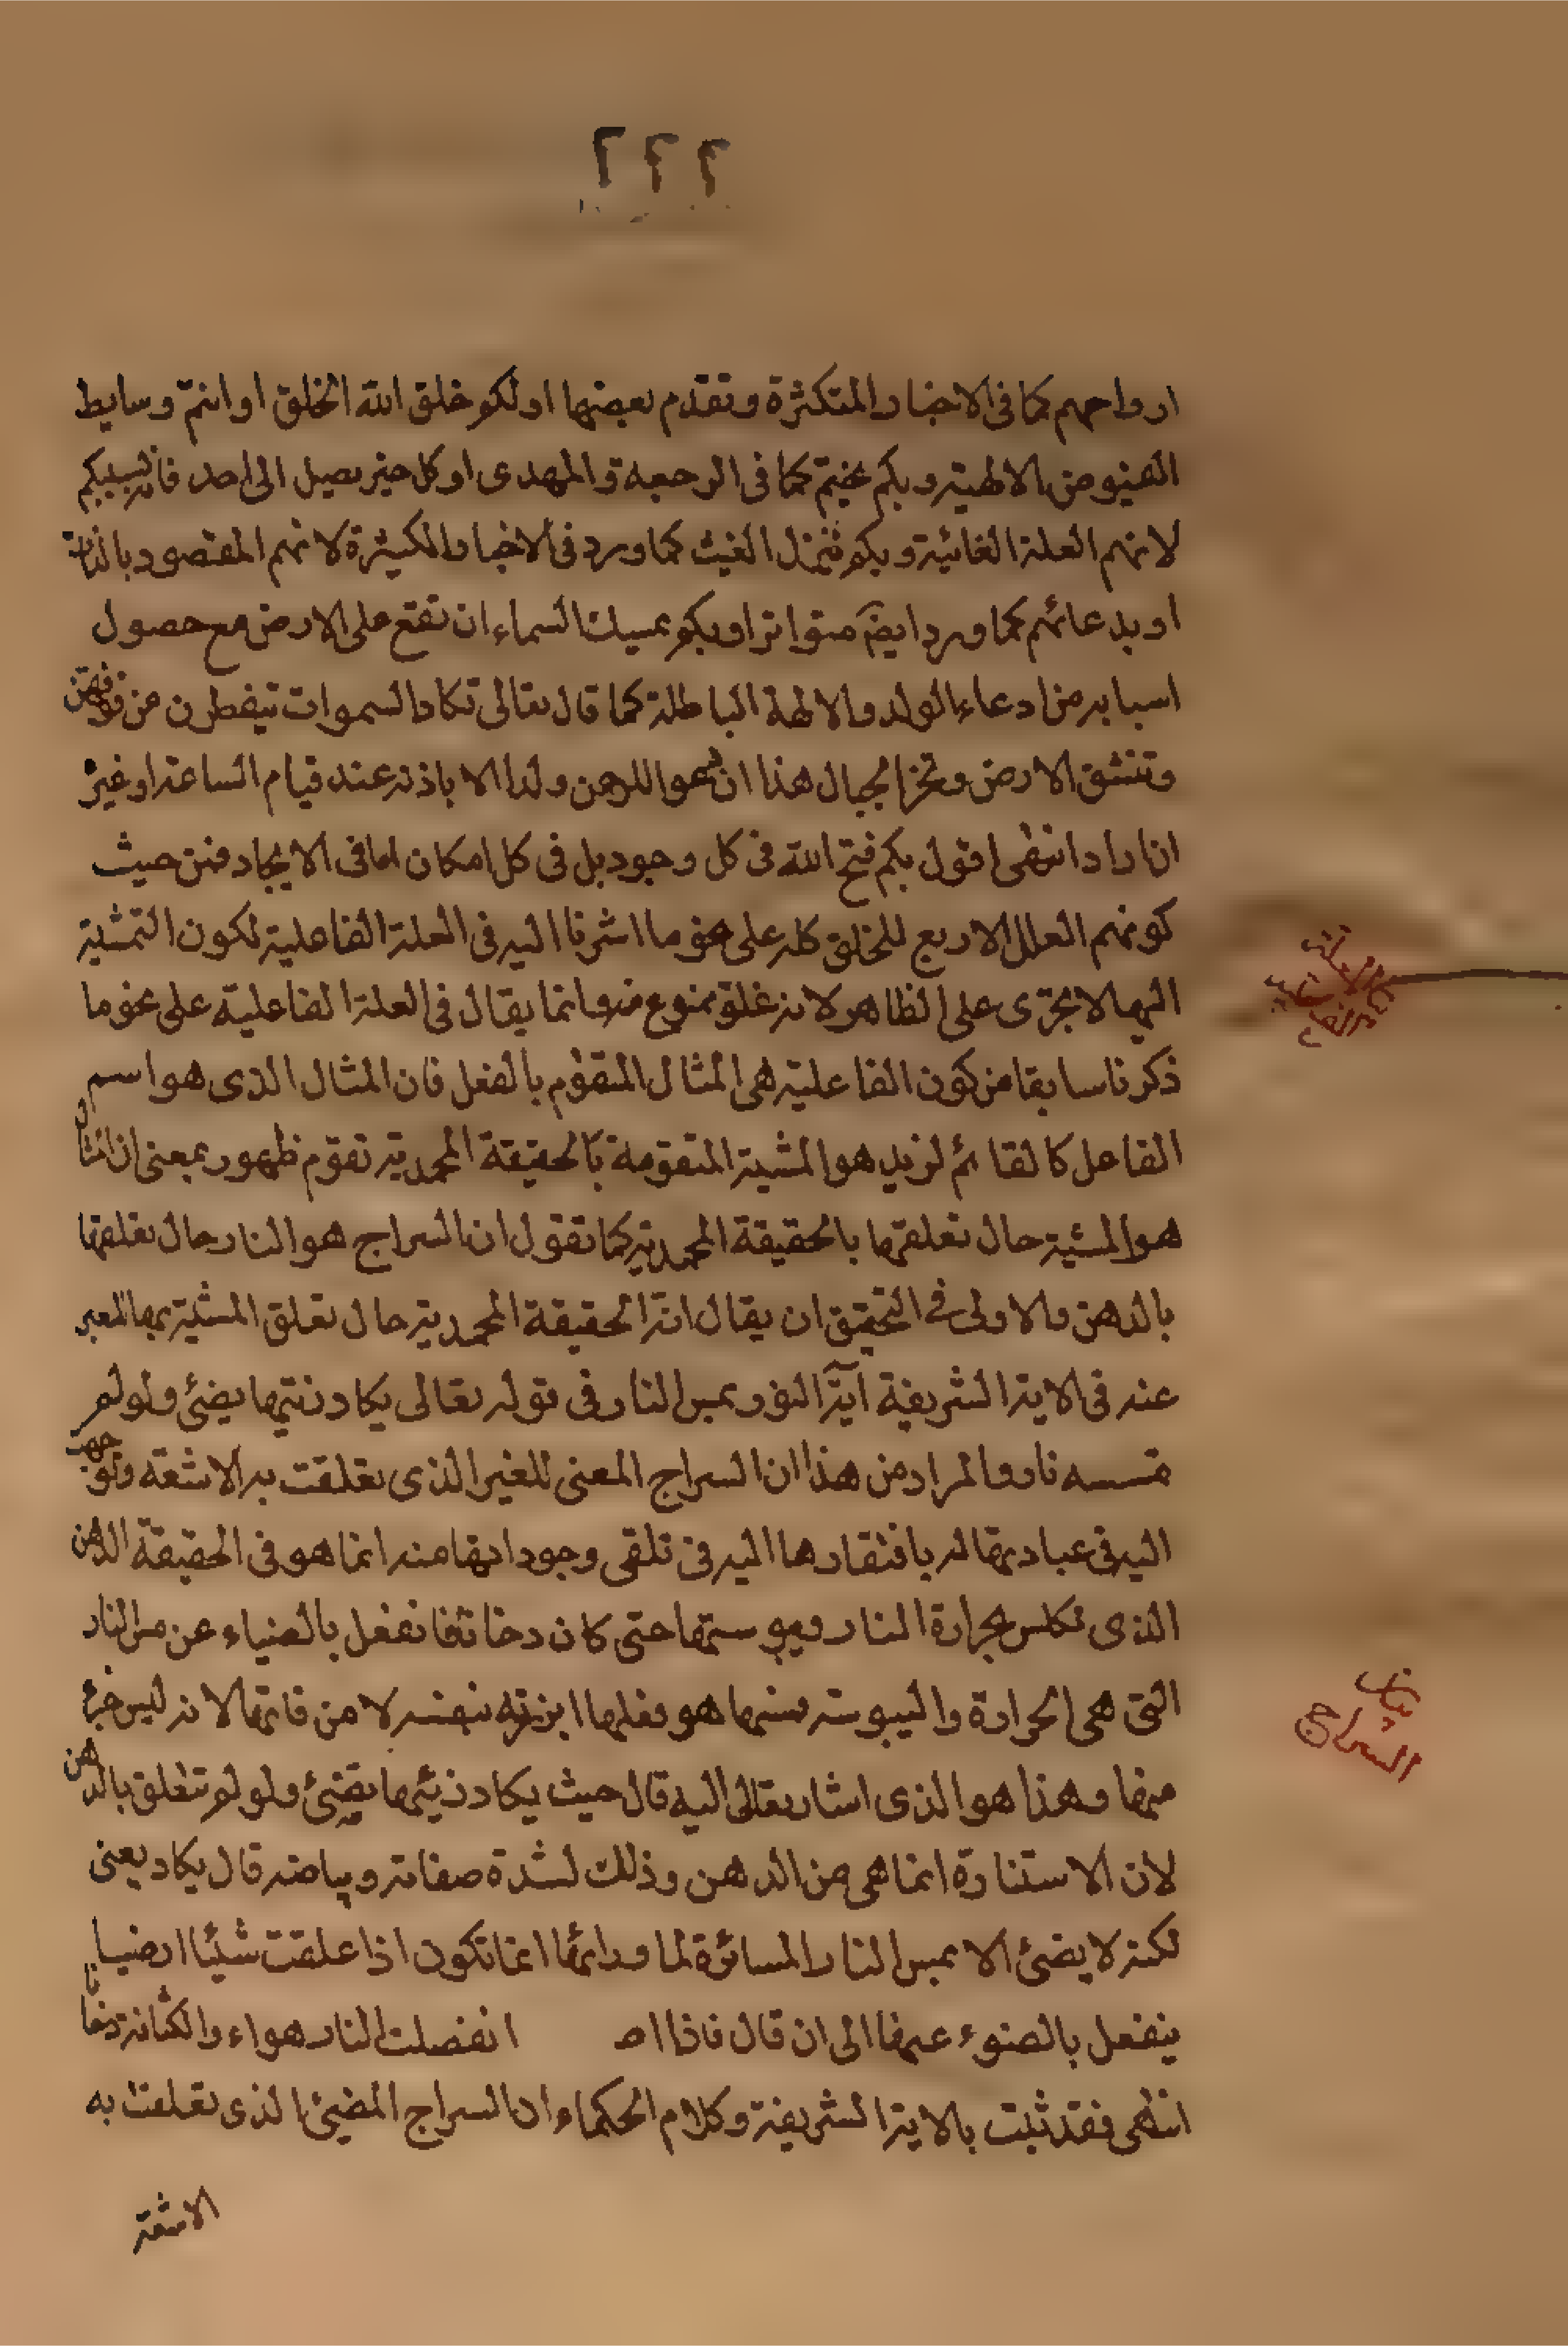 ٢٢٢
ارواحهم كما فى الاخبار المتكثرة وتقدم بعضها او لكم خلق الله الخلق او انتم وسايط
الفيوض الالهية وبكم يختم كما فى الرجعة والمهدى او كل خير يصل الى احد فانه بسببكم
لانهم العلة الغائية وبكم ينزل الغيث كما ورد فى الاخبار الكثيرة لانهم المقصود بالذات
او بدعائهم كما ورد ايضا متواترا وبكم يمسك السماء ان تقع على الارض مع حصول
اسبابه من ادعاء الولد والالهة الباطلة كما قال تعالى تكاد السموات يتفطرن من فوقهن
وتنشق الارض وتخر الجبال هذا ان دعوا للرحمن ولدا الا باذنه عند قيام الساعة او غيره
ان اراد انتهى اقول بكم فتح الله فى كل وجود بل فى كل امكان اما فى الايجاد فمن حيث
كونهم العلل الاربع للخلق كله على نحو ما اشرنا اليه فى العلة الفاعلية لكون التمشية
اليها لا تجرى على الظاهر لانه غلو ممنوع منه وانما يقال فى العلة الفاعلية على نحو ما
ذكرنا سابقا من كون الفاعلية هى المثال المتقوم بالفعل فان المثال الذى هو اسم
الفاعل كالقائم لزيد هو المشية المتقومة بالحقيقة المحمدية تقوم ظهور بمعنى ان المثال
هو المشية حال تعلقها بالحقيقة المحمدية كما تقول ان السراج هو النار حال تعلقها
بالدهن والاولى فى التحقيق ان يقال انه الحقيقة المحمدية حال تعلق المشية بها المعبر
عنه فى الاية الشريفة آية النور بمس النار فى قوله تعالى يكاد زيتها يضئ ولو لم
تمسسه نار والمراد من هذا ان السراج المعنى للغير الذى تعلقت به الاشعة وتوجهت
اليه فى عبادتها له بافتقارها اليه فى تلقى وجوداتها منه انما هو فى الحقيقة الدهن
الذى تكلس بحرارة النار ويبوستها حتى كان دخانا فانفعل بالضياء عن مس النار
التى هى الحرارة واليبوسة ومسها هو فعلها ابرزته بنفسه لا من ذاتها لانه ليس جزء
منها وهذا هو الذى اشار تعالى اليه قال حيث يكاد زيتها يضئ ولو لم تتعلق بالدهن
لان الاستنارة انما هى من الدهن وذلك لشدة صفائه وبياضه قال يكاد يعنى
لكنه لا يضئ الا بمس النار الساترة لما وراءها انما تكون اذا علقت شيئا ارضيا
ينفعل بالضوء عنها الى ان قال فاذا اط انفصلت النار هواء والكثافة دخانا
انتهى فقد ثبت بالاية الشريفة وكلام الحكماء ان السراج المضيئ الذى تعلقت به
الاشعة
بيان العلة الفاعلية
بيان السراج